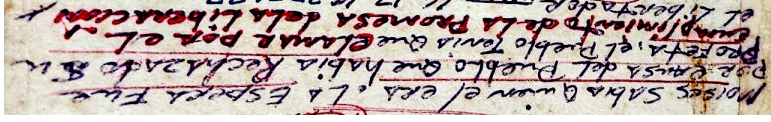 MOISES SABIA Quien el era, La Espera Fue
POR CAUSA del Pueblo, Que habia Rechazado a su
PROFETA, el Pueblo Tenia Que Clamar por el
Cumplimiento de la Promesa de la Liberacion
el Libertador